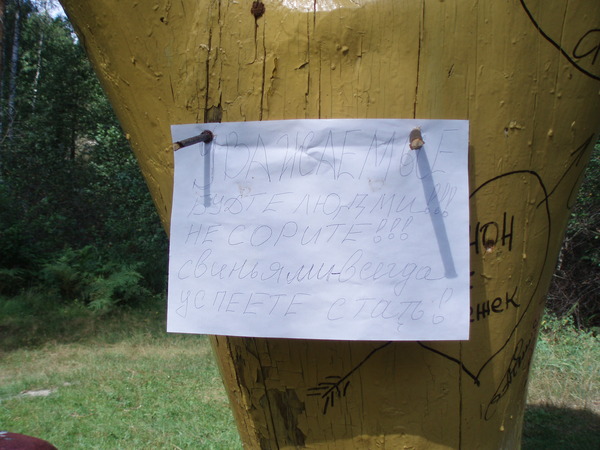 УВАЖАЕМЫЕ
БУДТЕ ЛЮДЬМИ!!!
НЕ СОРИТЕ!!!
свиньями-всегда
УСПЕЕТЕ СТАТЬ!
НОН
ежек